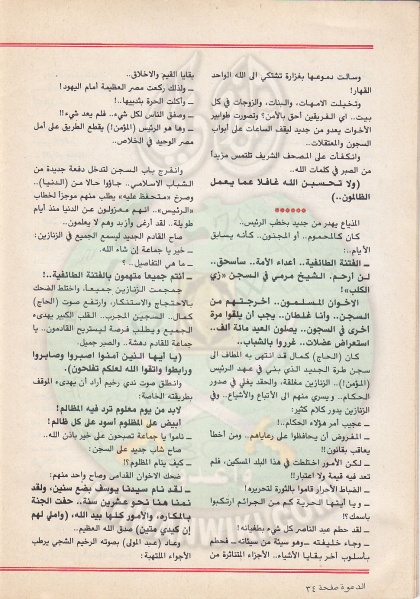 وسالت دموعها بغزارة تشتكي الى الله الواحد
القهار!
وتخيلت الامهات، والبنات، والزوجات في كل
بيت.. اي الفريقين أحق بالأمن؟ وتصورت طوابير
الأخوات يعدو من جديد ليقف الساعات على أبواب
السجون والمعتقلات..
وانكفأت على المصحف الشريف تلتمس مزيداً
من الصبر في كلمات الله..
(ولا تحسبن الله غافلا عما يعمل
الظالمون..)
******
المذياع يهدر من جديد بخطب الرئيس..
كان كالمحموم.. أو المجنون.. كأنه يسابق
الأيام..:
ــ الفتنة الطائفية.. أعداء الأمة.. سأسحق..
لن أرحم. الشيخ مرمي في السجن «زي
الكلب»!
الاخوان المسلمون.. أخرجتهم من
السجن.. وأنا غلطان.. يجب ان يلقوا مرة
أخرى في السجون.. يصلون العيد مائة ألف..
استعراض عضلات.. غرروا بالشباب..
كان (الحاج) كمال قد انتهى به المطاف الى
سجن طرة الجديد الذي بني في عهد الرئيس
(المؤمن!).. الزنازين مغلقة، والحقد يغلي في صدور
الحكام.. ويسري منهم الى الأتباع والأشياع.. وفي
الزنازين يدور كلام كثير:
ــ عجيب أمر هؤلاء الحكام..!
المفروض أن يحافظوا على رعاياهم.. ومن أخطأ
يعاقب بقانون!!
ــ لكن الأمور اختلطت في هذا البلد المسكين، فلم
تعد فيه قيمة ولا اعتبار!!
ــ الضباط الأحرار قاموا بالثورة لتحريره!
ــ و يا أيتها الحرية كم من الجرائم ارتكبوا
باسمك؟!
ــ لقد حطم عبد الناصر كل شيء بطغيانه!
ــ وجاء خليفته ــ وهو سيئة من سيئاته ــ فحطم
بأسلوب آخر بقايا الأشياء.. الأجزاء المتناثرة من
بقايا القيم والاخلاق..
ــ ولذلك ركعت مصر العظيمة أمام اليهود!
ــ وأكلت الحرة بثدييها..!
ــ وصفق الناس لكل شيء.. فلم يعد شيء!!
ــ وها هو الرئيس (المؤمن!) يقطع الطريق على أمل
مصر الوحيد في الخلاص..
وانفرج باب السجن لتدخل دفعة جديدة من
الشباب الاسلامي.. جاؤا حالا من (الدنيا)..
وصرخ «متحفظ عليه» يطلب منهم موجزاً لخطاب
«الرئيس».. انهم معزولون عن الدنيا منذ أيام
طويلة.. لقد أرغى وأزبد وهم لا يعلمون..
صاح القادم الجديد ليسمع الجميع في الزنازين:
ــ خير يا جماعة إن شاء الله.
ــ ما هي التفاصيل.. ؟
ــ أنتم جميعا متهمون بالفتنة الطائفية..!
جمجمت الزنازين جميعا.. واختلط الضحك
بالاحتجاج والاستنكار، وارتفع صوت (الحاج)
كمال.. السجين المجرب.. القلب الكبير يهدىء
الجميع و يطلب فرصة ليستريح القادمون.. يا
جماعة للقادم دهشة.. والصبر جميل.
(يا أيها الذين آمنوا اصبروا وصابروا
ورابطوا واتقوا الله لعلكم تفلحون).
وانطلق صوت ندي رخيم أراد أن يهدىء الموقف
بطريقته الخاصة:
لابد من يوم معلوم ترد فيه المظالم!
أبيض على المظلوم أسود على كل ظالم!
ــ ناموا يا جماعة تصبحون على خير باذن الله..
صاح شاب جديد على السجن:
ــ كيف ينام المظلوم؟!
ضحك الاخوان القدامى وصاح واحد منهم:
ــ لقد نام سيدنا يوسف بضع سنين، ولقد
نمنا هنا نحو عشرين سنة.. حفت الجنة
بالمكاره، والأمور كلها بيد الله، (واملي لهم
إن كيدي متين) صدق الله العظيم..
وعاد (عبد المولى) بصوته الرخيم الشجي يرطب
الأجزاء الملتهبة:
الدعوة صفحة ٣٤